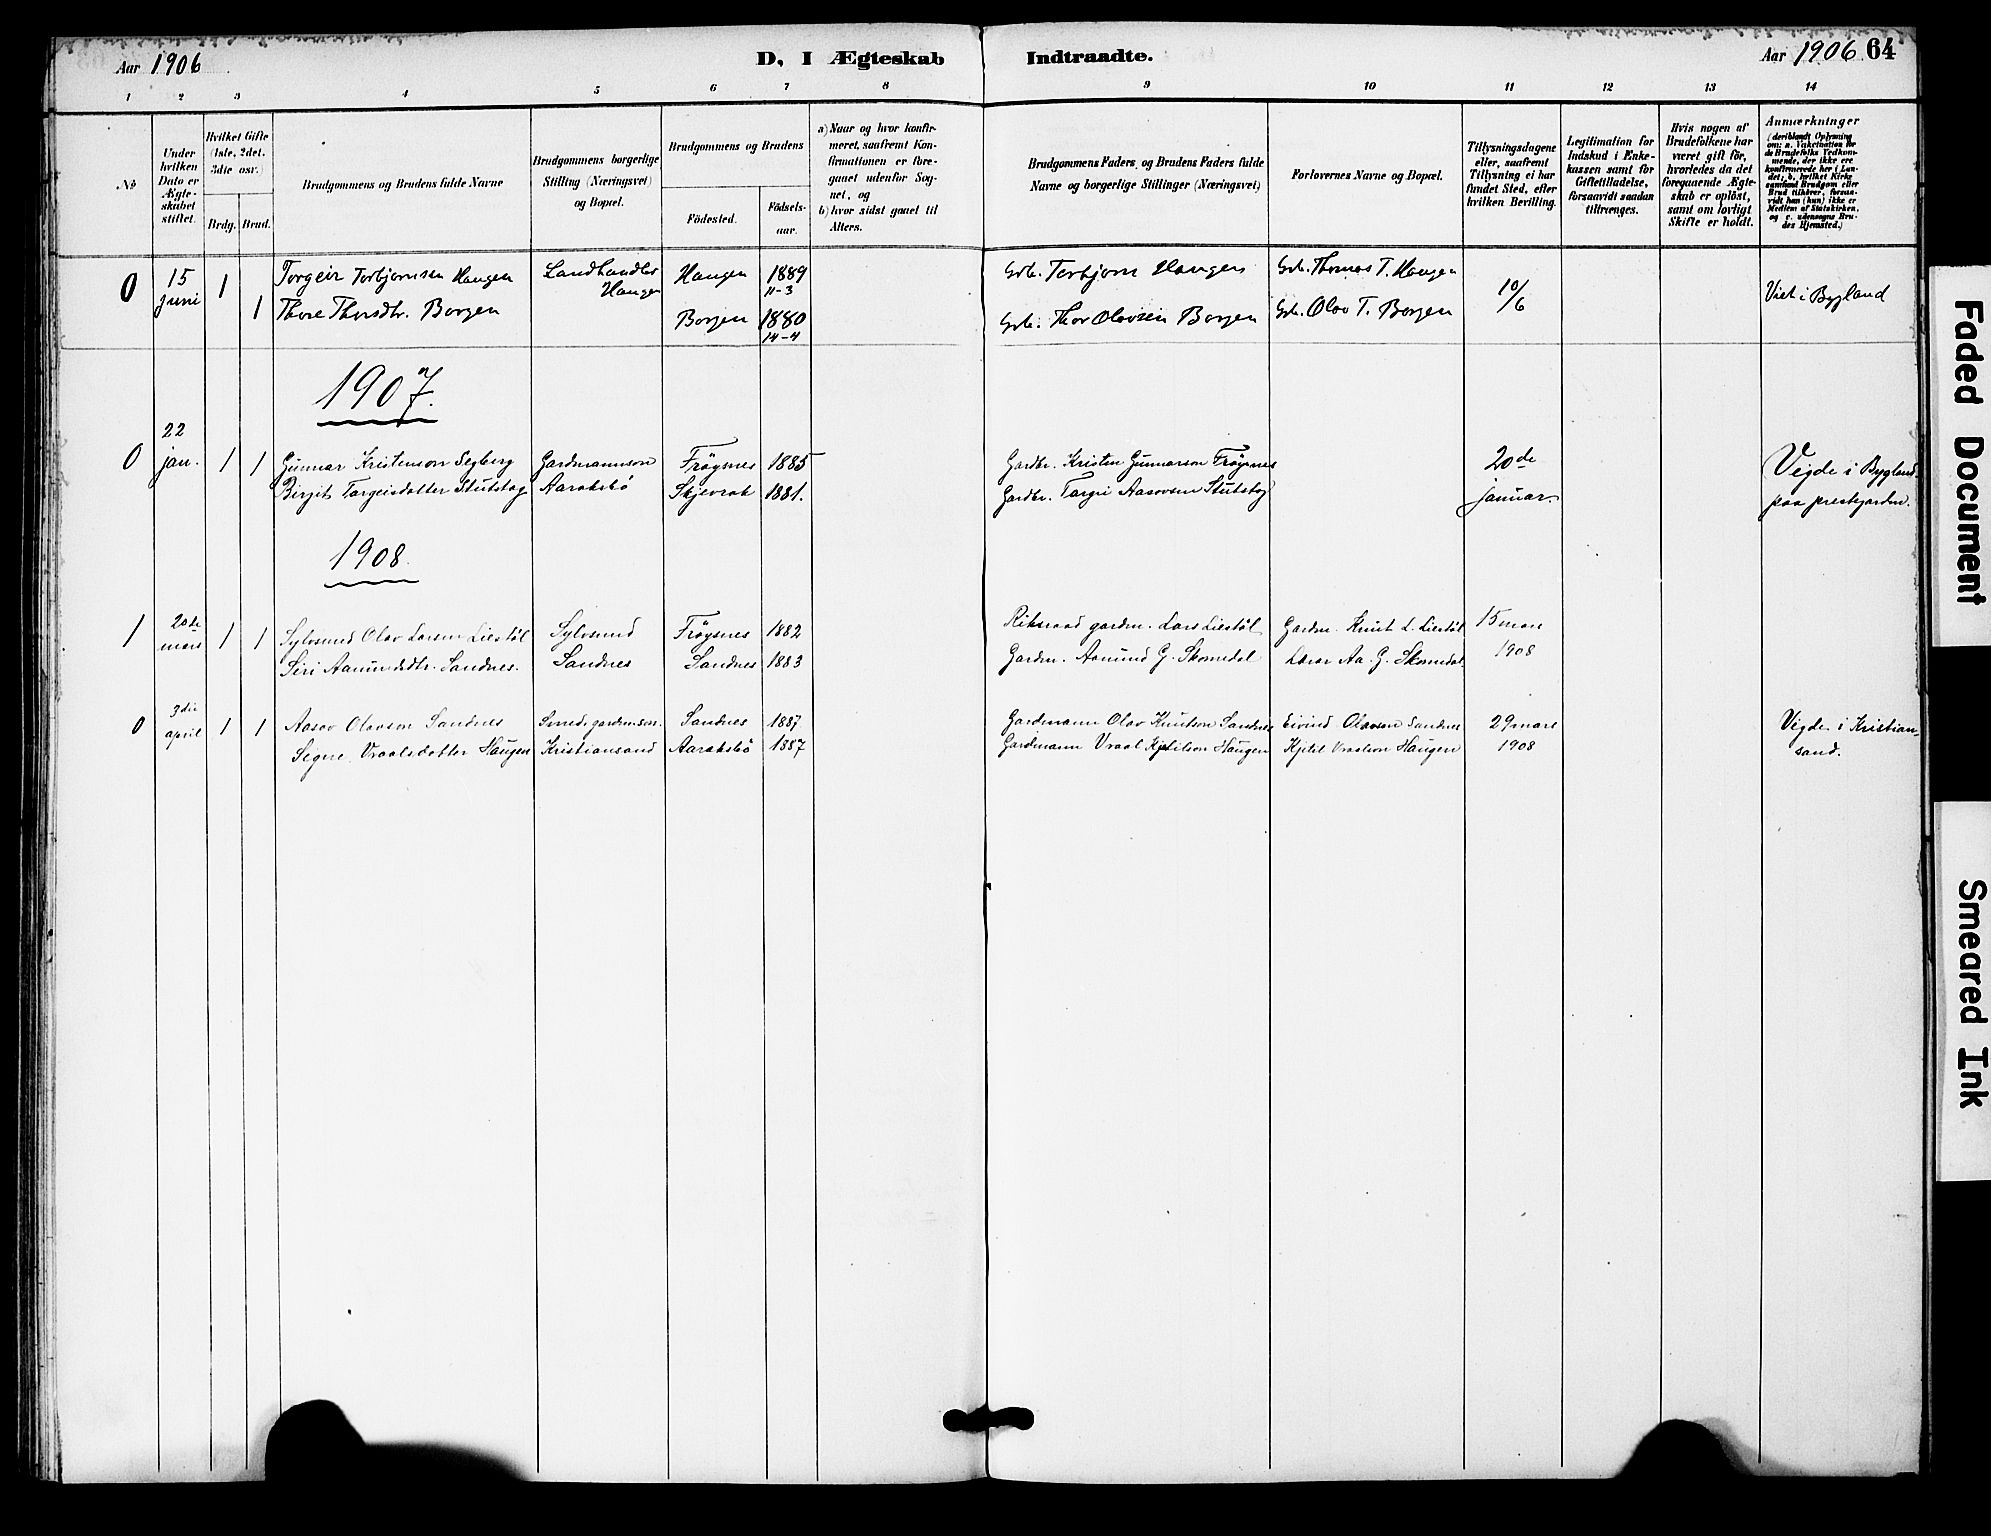 Aar 1906
D. I Ægteskab Indtraadte.
Aar 1906 64
1 2 3 4 5 6 7 8 9 10 11 12 13 14
No
Under hvilken Dato er Ægteskabet stiftet.
Hvilket Gifte (1ste, 2det, 3die osv.)
Brdg. Brud.
Brudgommens og Brudens fulde Navne
Brudgommens borgerlige Stilling (Næringsvei) og Bopæl.
Brudgommens og Brudens
Fødested. Fødselsaar.
a) Naar og hvor konfirmeret, saafremt Konfirmationen er foregaaet udenfor Sognet, og
b) hvor sidst gaaet til Alters.
Brudgommens Faders, og Brudens Faders fulde Navne og borgerlige Stillinger (Næringsvei)
Forlovernes Navne og Bopæl.
Tillysningsdagene eller, saafremt Tillysning ei har fundet Sted, efter hvilken Bevilling.
Legitimation for Indskud i Enkekassen samt for Giftetilladelse, forsaavidt saadan tiltrænges.
Hvis nogen af Brudefolkene har været gift før, hvorledes da det foregaaende Ægteskab er opløst, samt om lovligt Skifte er holdt.
Anmærkninger
(deriblandt Oplysning om: a. Vakcination for de Brudefolks Vedkommende, der ikke ere konfirmerede her i Landet; b. hvilket Kirkesamfund Brudgom eller Brud tilhører, forsaavidt han (hun) ikke er Medlem af Statskirken, og c. udensogns Brudes Hjemsted.)
0 15 juni 1 Torgeir Torbjørnsen Haugen Landhandler Haugen Haugen 1889 11-3 Grb. Torbjørn Haugen Grb. Thomas T. Haugen 10/6 Viet i Bygland
1 Thore Thorsdtr. Borgen Borgen 1880 14-4 Grb. Thor Olavsen Borgen Grb. Olav T. Borgen
1907.
0 22 jan. 1 1 Gunnar Kristenson Segberg Gardmannson Frøysnes 1885 Gardbr. Kristen Gunnarson Frøysnes 20de januar. Vigde i Bygland
Birgit Targeisdatter Stutstog Aaraksbø Skjevrak 1881. Gardbr. Targei Aasovsen Stutstog paa prestgarden.
1908.
1 20de mars 1 1 Sylvsmed Olav Larsen Liestøl Sylvsmed Frøysnes 1882 Riksraad gardm. Lars Liestøl Gardm. Knut L. Liestøl 15 mars
Siri Aamundsdtr. Sandnes. Sandnes Sandnes 1883 Gardm. Aamund G. Skomedal Lærar Aa. G. Skomedal. 1908
0 3die april 1 1 Aasov Olavson Sandnes Smed, gardm.son. Sandnes 1887 Gardmann Olav Knutson Sandnes Eivind Olavson Sandnes 29 mars Vigde i Kristian-
Signe Vraalsdatter Haugen Kristiansand Aaraksbø 1887 Gardmann Vraal Kjetilson Haugen Kjetil Vraalson Haugen 1908 sand.
Faded Document
Smeared Ink